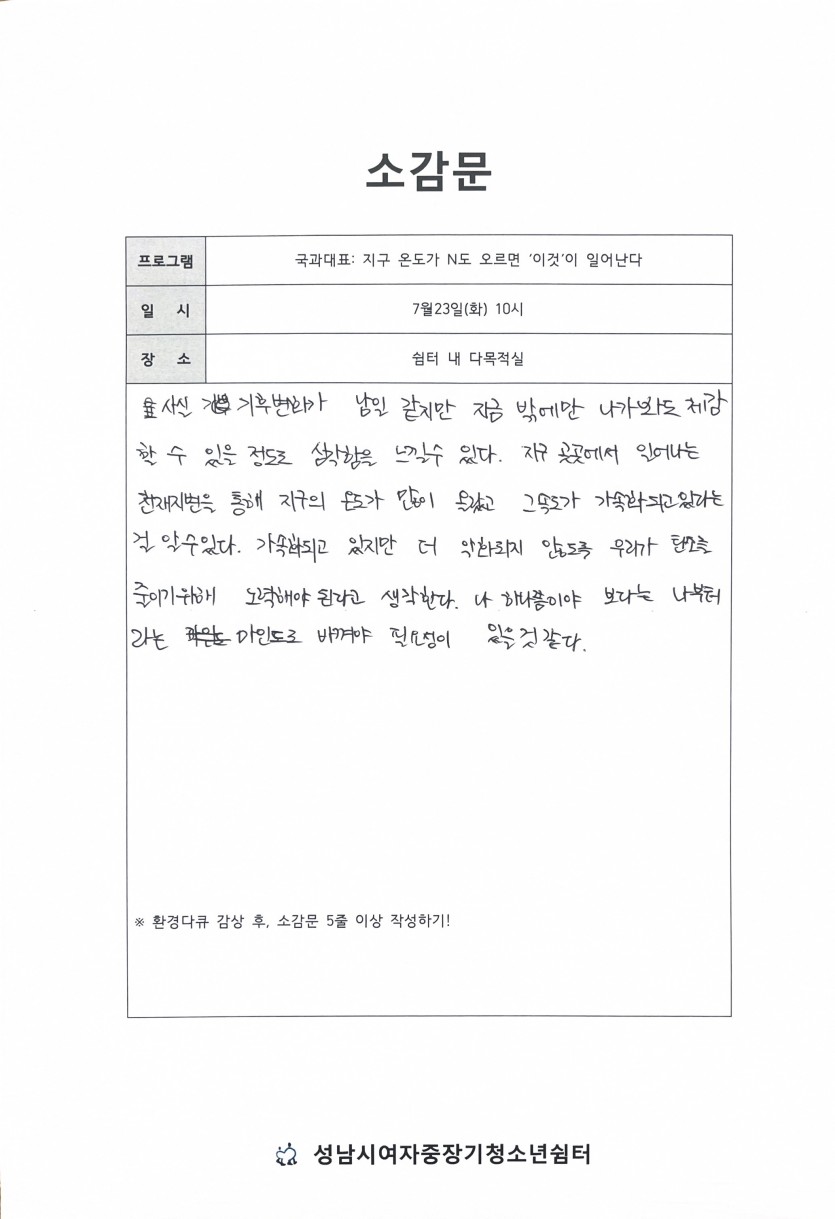 소감문
프로그램 국과대표: 지구 온도가 N도 오르면 '이것'이 일어난다
일 시 7월23일(화) 10시
장 소 쉼터 내 다목적실
사실 기후변화가 남일 같지만 지금 밖에만 나가봐도 체감
할 수 있을 정도로 심각함을 느낄수 있다. 지구 곳곳에서 일어나는
천재지변을 통해 지구의 온도가 많이 올랐고 그속도가 가속화되고있다는
걸 알수있다. 가속화되고 있지만 더 악화되지 않도록 우리가 탄소를
줄이기위해 노력해야 된다고 생각한다. 나 하나쯤이야 보다는 나부터
라는 마인드로 바껴야 필요성이 있을것 같다.
※ 환경다큐 감상 후, 소감문 5줄 이상 작성하기!
성남시여자중장기청소년쉼터